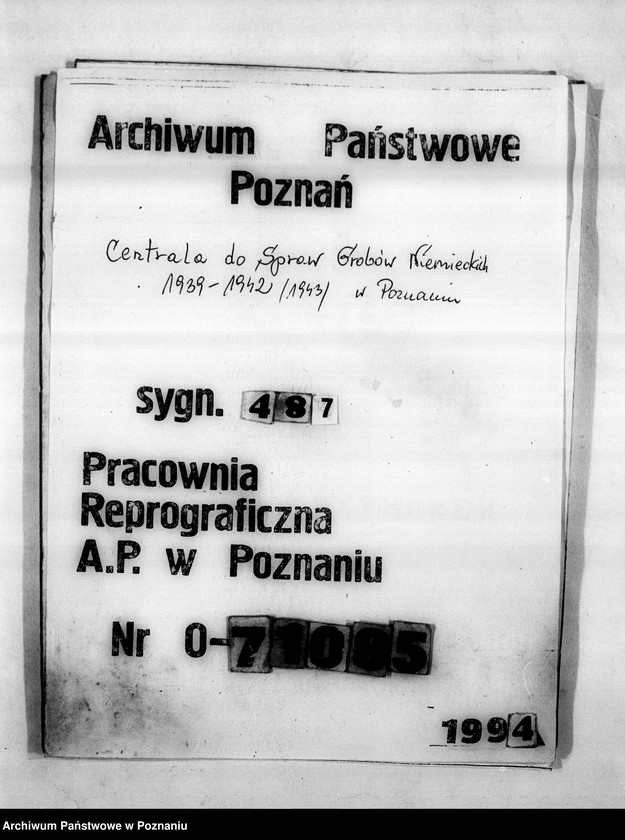 Archiwum Państwowe
Poznań
Centrala do Spraw Grobów Niemieckich
1939-1942 /1943/ w Poznaniu
sygn. 487
Pracownia
Reprograficzna
A.P. w Poznaniu
Nr 0-71085
1994
Archiwum Państwowe w Poznaniu